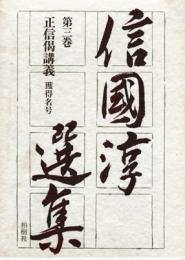 信國淳
選集
第三巻
正信偈講義 獲得名号
柏樹社